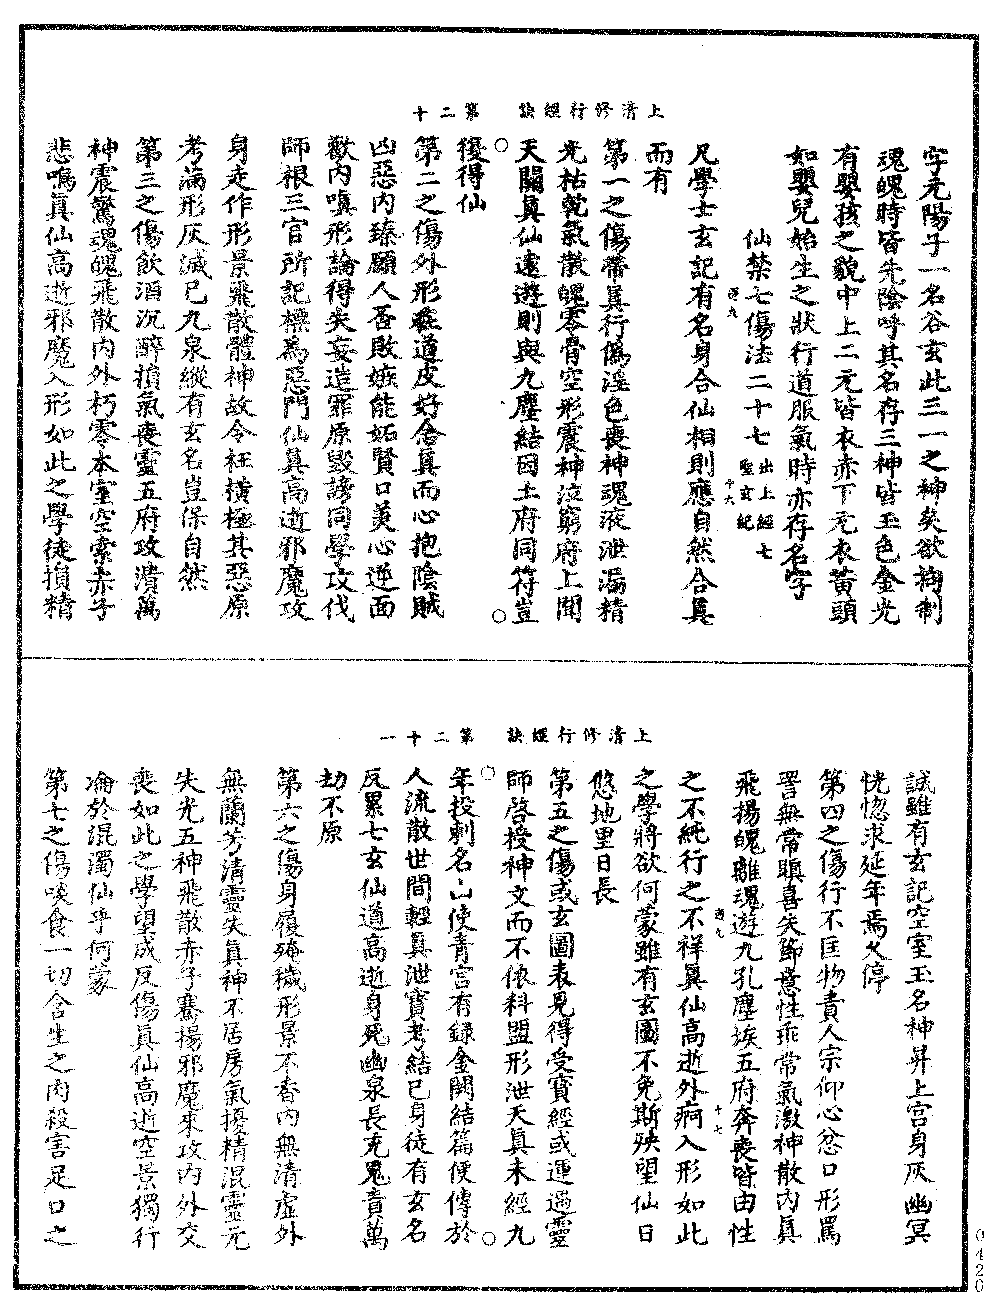 上清修行經訣　第二十
字元陽子一名谷玄此三一之神矣欲拘制
魂魄時皆先陰呼其名存三神皆玉色金光
有嬰孩之貌中上二元皆衣赤下元衣黃頭
如嬰兒始生之狀行道服氣時亦存名字
仙禁七傷法二十七 出上經七聖玄紀
凡學士玄記有名身合仙相則應自然合真
而有
第一之傷帶真行偽淫色喪神魂液泄漏精
光枯乾氣散魄零骨空形震神泣窮府上聞
天關真仙遠遊則與九塵結因土府同符豈
復得仙
第二之傷外形在道皮好念真而心抱陰賊
凶惡內臻願人否敗嫉能妬賢口美心逆面
歡內嗔形論得失妄造罪原毀謗同學攻伐
師根三官所記標為惡門仙真高逝邪魔攻
身走作形景飛散體神故令枉橫極其惡原
考滿形灰滅已九泉縱有玄名豈保自然
第三之傷飲酒沉醉損氣喪靈五府攻潰萬
神震驚魂魄飛散內外朽零本室空索赤子
悲鳴真仙高逝邪魔入形如此之學徒損精
上清修行經訣　第二十一
誠雖有玄記空室玉名神昇上宮身灰幽冥
恍惚求延年焉久停
第四之傷行不匡物責人宗仰心忿口形罵
詈無常瞋喜失節意性乖常氣激神散內真
飛揚魄離魂遊九孔塵埃五府奔喪皆由性
之不純行之不祥真仙高逝外痾入形如此
之學將欲何蒙雖有玄圖不免斯殃望仙日
悠地里日長
第五之傷或玄圖表見得受寶經或運遇靈
師啓授神文而不依科盟形泄天真未經九
年投刺名山使青宮有錄金闕結篇便傳於
人流散世間輕真泄寶考結己身徒有玄名
反累七玄仙道高逝身死幽泉長充鬼責萬
劫不原
第六之傷身履殗穢形景不香內無清虛外
無蘭芳清靈失真神不居房氣擾精混靈元
失光五神飛散赤子騫揚邪魔來攻內外交
喪如此之學望成反傷真仙高逝空景獨行
淪於混濁仙乎何蒙
第七之傷啖食一切含生之肉殺害足口之
0420